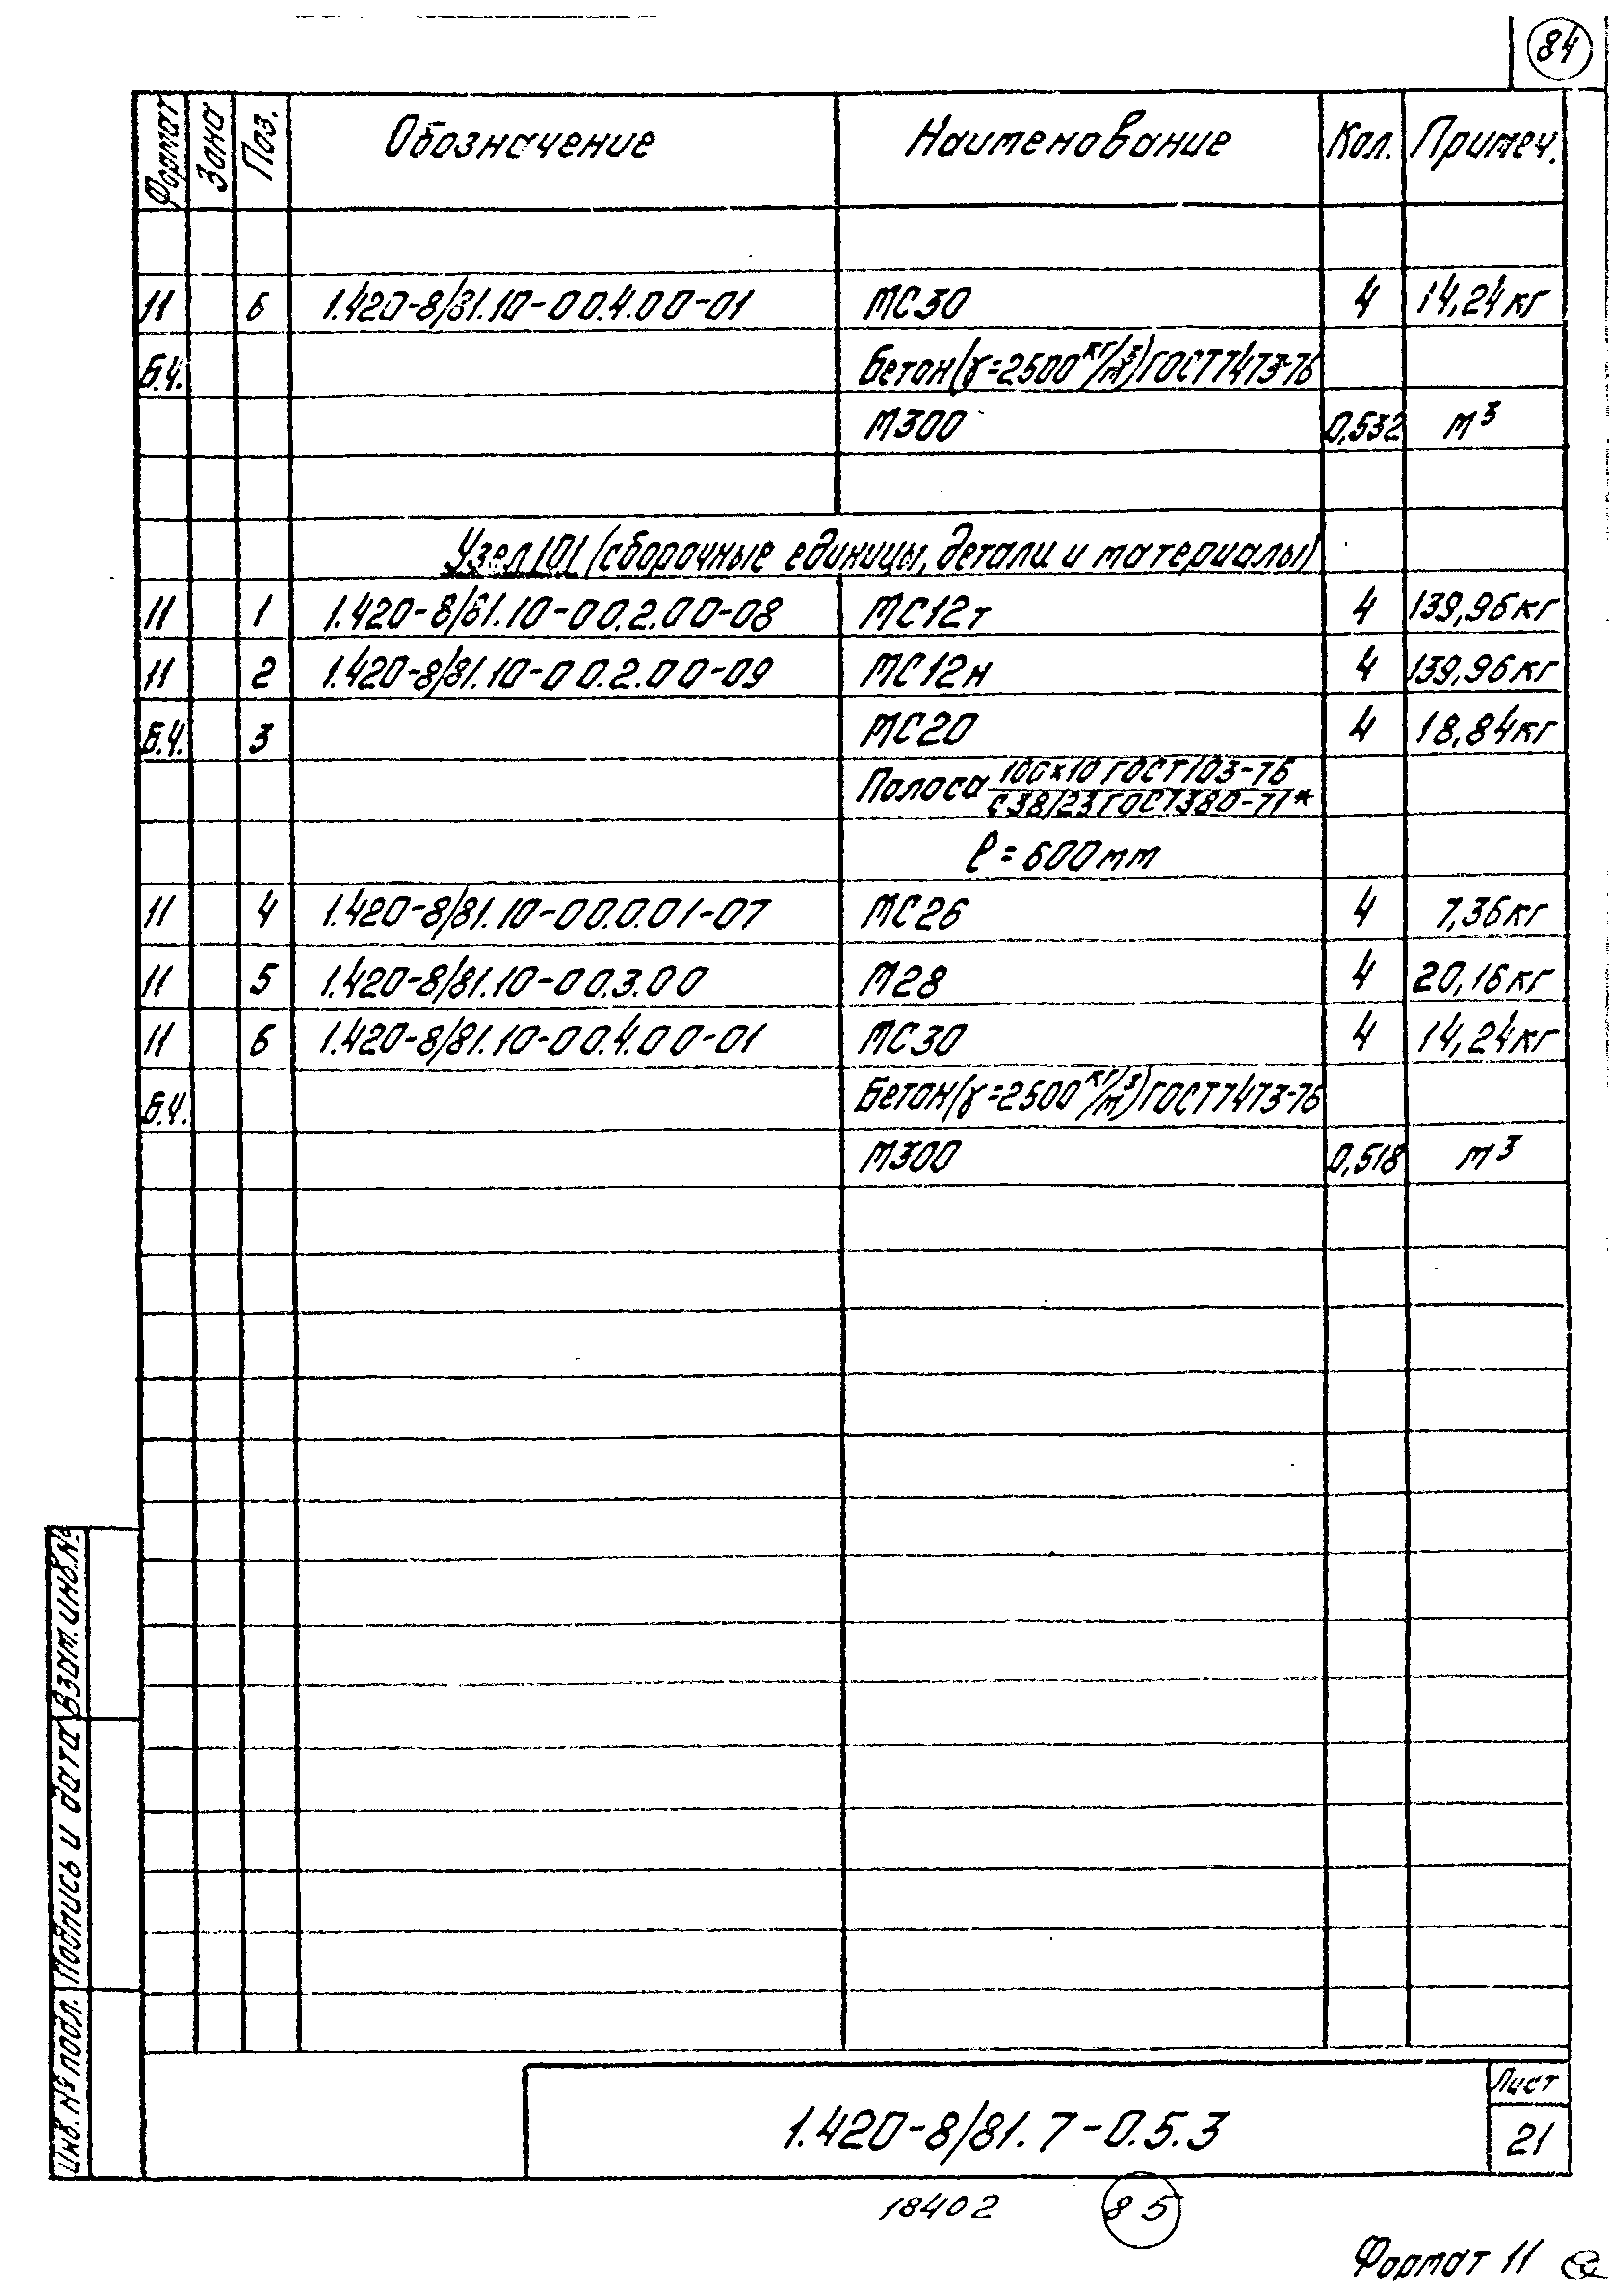 84
Формат Зона Поз. Обозначение Наименование Кол. Примеч.
11 6 1.420-8/81.10-00.4.00-01 МС30 4 14,24кг
Б.Ч. Бетон(γ=2500 кг/м³)ГОСТ7473-76
М300 0,532 м³
Узел 101 (сборочные единицы, детали и материалы)
11 1 1.420-8/81.10-00.2.00-08 МС12т 4 139,96кг
11 2 1.420-8/81.10-00.2.00-09 МС12н 4 139,96кг
Б.Ч. 3 МС20 4 18,84кг
Полоса 100×10 ГОСТ103-76 / С38/23ГОСТ380-71*
ℓ=600мм
11 4 1.420-8/81.10-00.0.01-07 МС26 4 7,36кг
11 5 1.420-8/81.10-00.3.00 М28 4 20,16кг
11 6 1.420-8/81.10-00.4.00-01 МС30 4 14,24кг
Б.Ч. Бетон(γ=2500 кг/м³)ГОСТ7473-76
М300 0,518 м³
Взам. инв.№
Подпись и дата
Инв. № подл.
1.420-8/81.7-0.5.3
Лист
21
18402 85
Формат 11